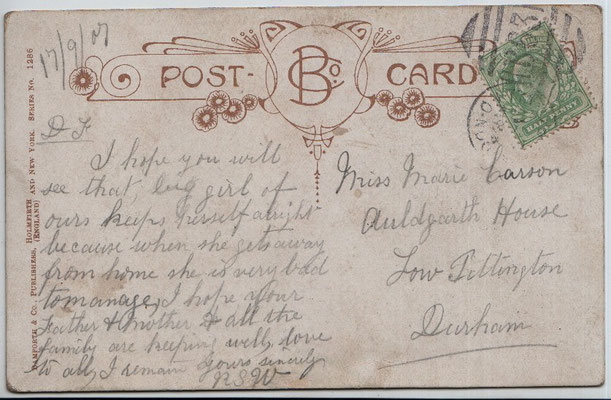 17/9/07
POST-CARD
B Co.
BAMFORTH & CO., PUBLISHERS, HOLMFIRTH AND NEW YORK. SERIES No. 1286
(ENGLAND)
D F
I hope you will
see that big girl of
ours keeps herself alright
because when she gets away
from home she is very bad
to manage, I hope your
Father & mother & all the
family are keeping well, love
to all, I remain yours sincerely
RSW
Miss Marie Carson
Auldgarth House
Low Pittington
Durham